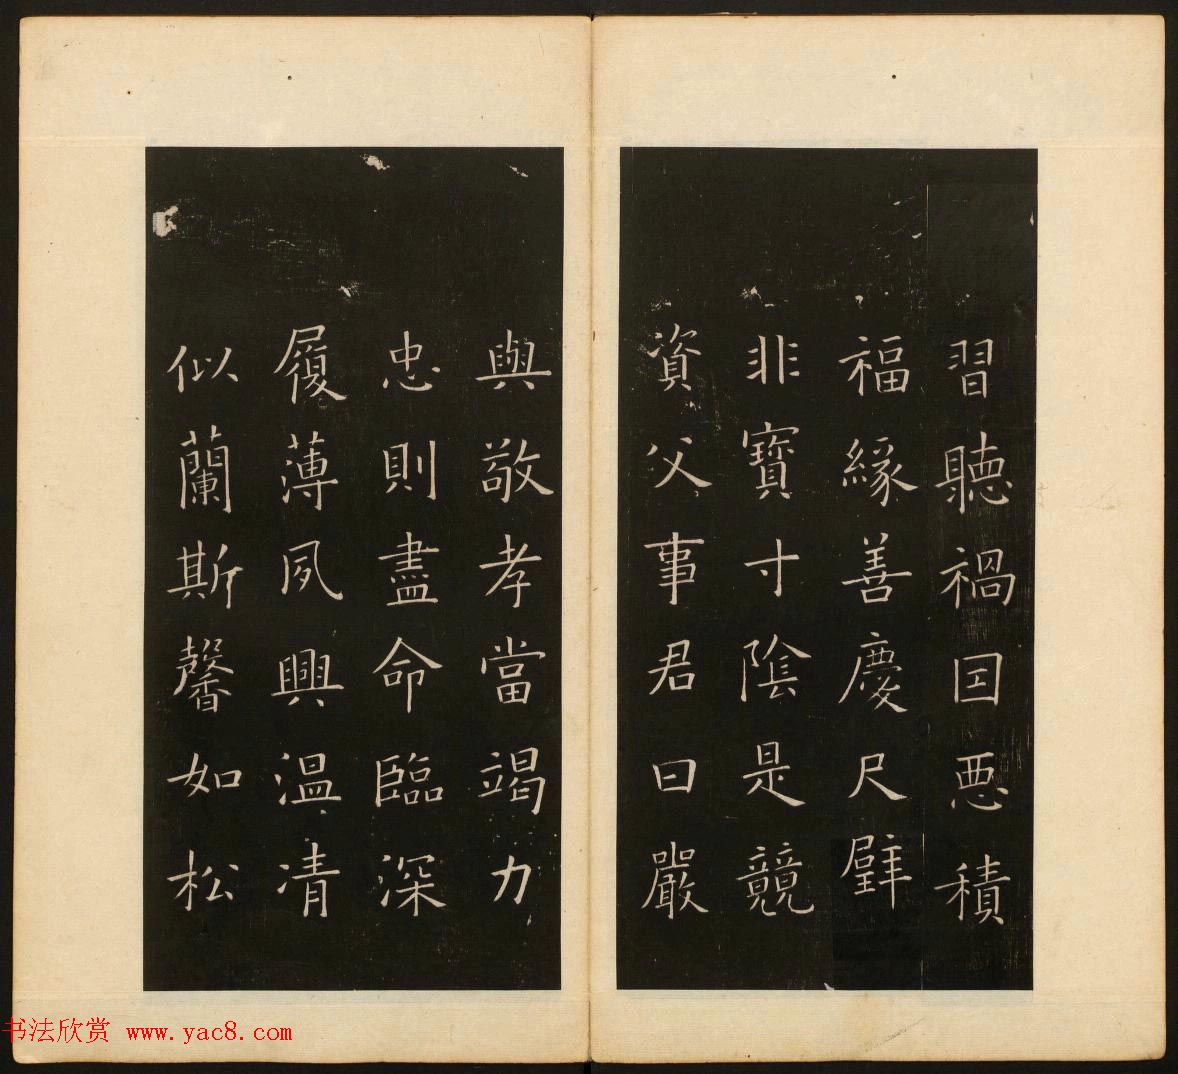 習聽禍因惡積
福緣善慶尺璧
非寶寸陰是競
資父事君曰嚴
與敬孝當竭力
忠則盡命臨深
履薄夙興温凊
似蘭斯馨如松
书法欣赏 www.yac8.com